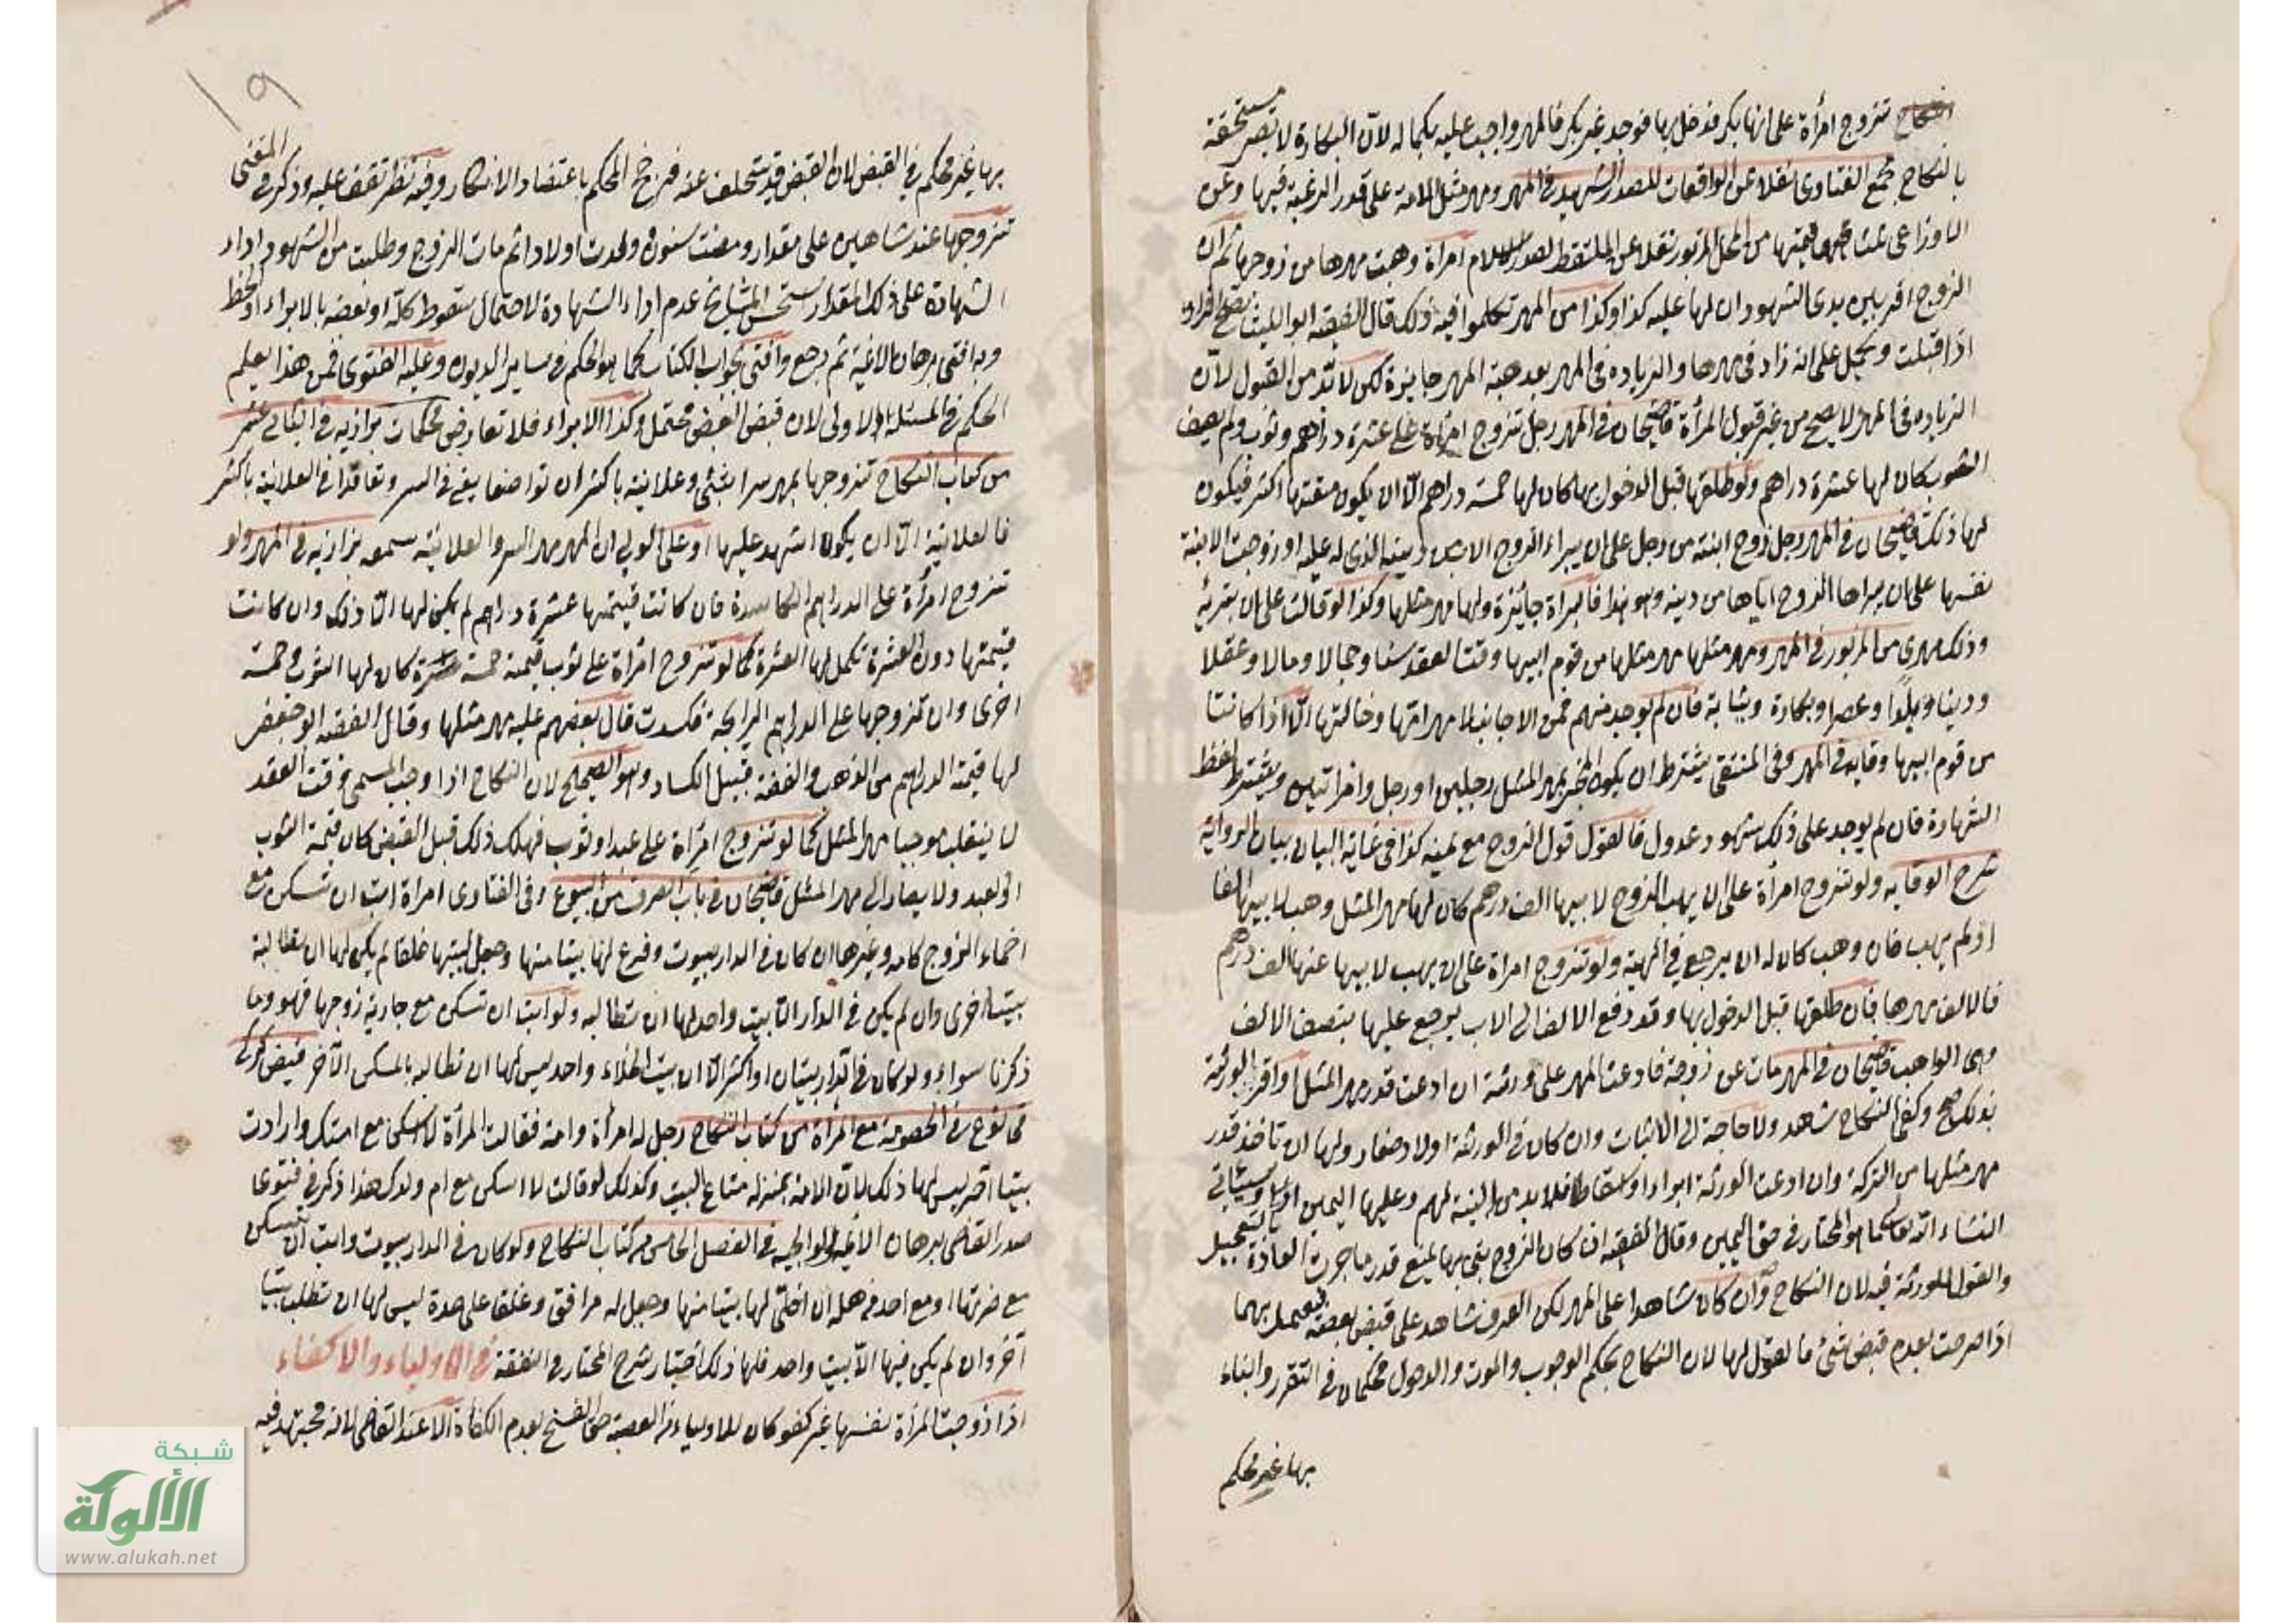 تزوج امرأة على انها بكر فدخل بها فوجد غير بكر فالمهر واجب عليه بكماله لان البكارة لا تصير مستحقة
بالنكاح مجمع الفتاوى نقلا عن الواقعات للصدر الشهيد في المهر ومهر مثل الامة على قدر الرغبة فيها وعن
الاوزاعي ثلث قيمتها من المحل المزبور نقلا عن الملتقط لصدر الاسلام امرأة وهبت مهرها من زوجها ثم ان
الزوج اقر بين يدى الشهود ان لها عليه كذا وكذا من المهر تكلموا فيه ذلك قال الفقيه ابو الليث يصح اقراره
اذا قبلت ويحمل على انه زاد في مهرها والزياده فى المهر بعد هبة المهر جايزة لكن لا بد من القبول لان
الزياده فى المهر لا يصح من غير قبول المرأة قاضيخان في المهر رجل تزوج امرأة على عشرة دراهم وثوب ولم يصف
الثوب كان لها عشرة دراهم ولو طلقها قبل الدخول بها كان لها خمسة دراهم الا ان يكون متعتها اكثر فيكون
لها ذلك قاضيخان في المهر رجل زوج ابنته من رجل على ان يبراء الزوج الاب من دينه الذى له عليه او زوجت الابنة
نفسها على ان يبراها الزوج اباها من دينه وهو كذا فالبراة جائزة ولها مهر مثلها وكذا لو قالت على ان تبرئه
وذلك مهرى من المزبور في المهر ومهر مثلها مهر مثلها من قوم ابيها وقت العقد سنا وجمالا ومالا وعقلا
ودينا وبلدا وعصرا وبكارة وثيابة فان لم يوجد منهم فمن الاجانب لا مهر امها وخالتها الا اذا كانتا
من قوم ابيها وقايه في المهر وفى المنتقى يشترط ان يكون المخبر بمهر المثل رجلين او رجل وامراتين ويشترط لفظ
الشهادة فان لم يوجد على ذلك شهود عدول فالقول قول الزوج مع يمينه كذا فى غاية البيان بيان الرواية
شرح الوقايه ولو تزوج امرأة على ان يهب الزوج لابيها الف درهم كان لها مهر المثل وهب لابيها الفا
او لم يهب فان وهب كان له ان يرجع في الهبة ولو تزوج امرأة على ان يهب لابيها عنها الف درهم
فالالف مهرها فان طلقها قبل الدخول بها وقد دفع الالف الى الاب يرجع عليها بنصف الالف
وهى الواهبة قاضيخان في المهر مات عن زوجة فادعت المهر على ورثته ان ادعت قدر مهر المثل او اقر الورثة
بذلك صح وكفى النكاح شاهد ولا حاجة الى الاثبات وان كان في الورثة اولاد صغار ولها ان تاخذ قدر
مهر مثلها من التركة وان ادعت الورثة ابراء او اسقاطا فلا بد من البينة لهم وعليها اليمين
انشاء الله تعالى كما هو المختار في حق اليمين وقال الفقيه ان كان الزوج بنى بها يمنع قدر ما جرت العادة بتعجيله
والقول للورثة فيه لان النكاح وان كان شاهدا على المهر لكن العرف شاهد على قبض بعضه فيعمل بهما
اذا صرحت بعدم قبض شئ فالقول لها لان النكاح محكم الوجوب والموت والدخول محكمان في التقرر والبناء
بها غير محكم
١٩
بها غير محكم في القبض لان القبض قد يتخلف عنه فرجح المحكم باعتضاد الانكار وفيه نظر تقف عليه وذكر في المنتقى
تزوجها عند شاهدين على مقدار ومضت سنون وولدت اولادا ثم مات الزوج وطلبت من الشهود اداء
الشهادة على ذلك المقدار استحسن المشايخ عدم اداء الشهادة لاحتمال سقوط كله او بعضه بالابراء او الحط
وبه افتى برهان الائمة ثم رجع وافتى بجواب الكتاب كما هو الحكم في ساير الديون وعليه الفتوى فمن هذا يعلم
الحكم في المسئلة الاولى لان قبض البعض محتمل وكذا الابراء فلا تعارض محكمات بزازيه في الثانى عشر
من كتاب النكاح تزوجها بمهر سرا بشئ وعلانية باكثر ان تواضعا يعنى في السر وتعاقدا في العلانية باكثر
فالعلانية الا ان يكون اشهد عليها او على الولي ان المهر مهر السر والعلانية سمعه بزازيه في المهر ولو
تزوج امرأة على الدراهم الكاسدة فان كانت قيمتها عشرة دراهم لم يكن لها الا ذلك وان كانت
قيمتها دون العشرة تكمل لها العشرة كما لو تزوج امرأة على ثوب قيمته خمسة كان لها الثوب وخمسة
اخرى وان تزوجها على الدراهم الرايجة فكسدت قال بعضهم عليه مهر مثلها وقال الفقيه ابو جعفر
لها قيمة الدراهم من الذهب والفضة قبيل الكساد وهو الصحيح لان النكاح اذا وجب المسمى وقت العقد
لا ينقلب موجبا مهر المثل كما لو تزوج امرأة على عبد او ثوب فهلك ذلك قبل القبض كان قيمة الثوب
او العبد ولا يصار الى مهر المثل قاضيخان في باب الصرف من البيوع وفى الفتاوى امرأة ابت ان تسكن مع
احماء الزوج كامه وغيرها ان كان في الدار بيوت وفرغ لها بيتا منها وجعل لبيتها غلقا لم يكن لها ان تطالبه
بيتا اخرى وان لم يكن في الدار الا بيت واحد لها ان تطالبه ولو ابت ان تسكن مع جارية زوجها فهو وما
ذكرنا سواء ولو كان في الدار بيتان او اكثر الا ان بيت الخلاء واحد ليس لها ان تطالبه بالمسكن الآخر فيض كركى
في نوع في الخصومة مع المرأة من كتاب النكاح رجل له امرأة وامة فقالت المرأة لا اسكن مع امتك وارادت
بيتا آخر ليس لها ذلك لان الامة بمنزلة متاع البيت وكذلك لو قالت لا اسكن مع ام ولدك هذا ذكر في فتوى
صدر القاضى برهان الائمة ولوالجيه في الفصل الخامس من كتاب النكاح ولو كان في الدار بيوت وابت ان تسكن
مع ضرتها او مع احد من اهله ان اخلى لها بيتا منها وجعل له مرافق وغلقا على حدة ليس لها ان تطلب بيتا
آخر وان لم يكن فيها الا بيت واحد فلها ذلك اختيار شرح المختار في النفقة في الاولياء والاكفاء
اذا زوجت المرأة نفسها غير كفو كان للاولياء من العصبة حق الفسخ لعدم الكفاة الا عند القاضى لانه مجتهد فيه
شبكة
الألوكة
www.alukah.net